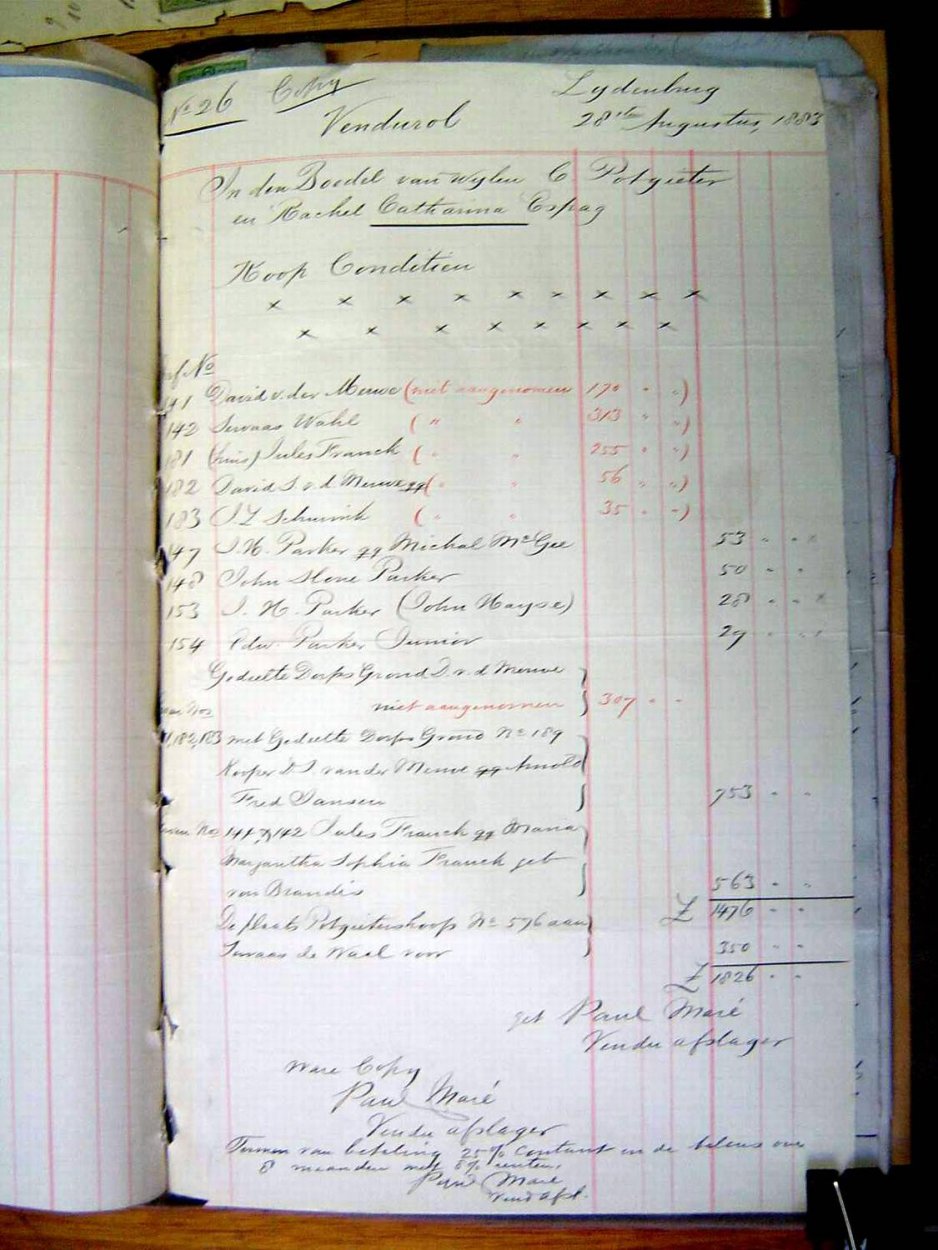 No 26 Copy Lydenburg
Vendurol 28ste Augustus, 1883
In den Boedel van wylen C Potgieter
en Rachel Catharina Espag
Koop Conditien
x x x x x x x x x
x x x x x x x x
erf No
141 David v. der Merwe (niet aangenomen 170 " ")
142 Servaas Wahl ( " " 313 " ")
181 (huis) Jules Franck ( " " 255 " ")
182 David J. v. d Merwe qq ( " " 56 " ")
183 J Z Schurink ( " " 35 " ")
147 J. H. Parker qq Michal McGee 53 " "
148 John Stone Parker 50 " "
153 J. H. Parker (John Hayse) 28 " "
154 Edw. Parker Junior 29 " "
Gedeelte Dorps Grond D. v. d Merwe
niet aangenomen } 307 " "
182, 183 met Gedeelte Dorps Grond No 189
Kooper D. J. van der Merwe qq Arnold
Fred Jansen } 753 " "
Erven Nos 141 & 142 Jules Franck qq Maria
Margaretha Sophia Franck geb
von Brandis } 563 " "
£ 1476 " "
De plaats Potgietershoop No 576 aan
Servaas de Waal voor } 350 " "
£ 1826 " "
get Paul Maré
Vendu afslager
Ware Copy
Paul Maré
Vendu afslager
Termen van betaling 25% Contant en de balans over
8 maanden met 8% renten.
Paul Maré
Vend afsl.